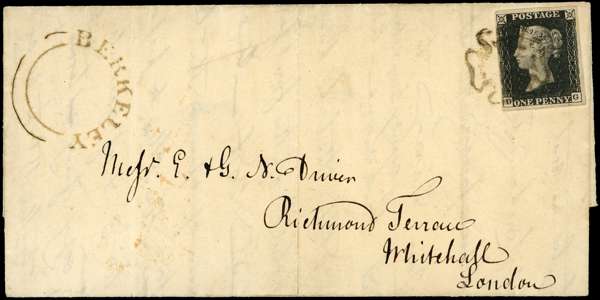 BERKELEY
POSTAGE
ONE PENNY
G
Messr. E. & G. N. Driver
Richmond Terrace
Whitehall
London